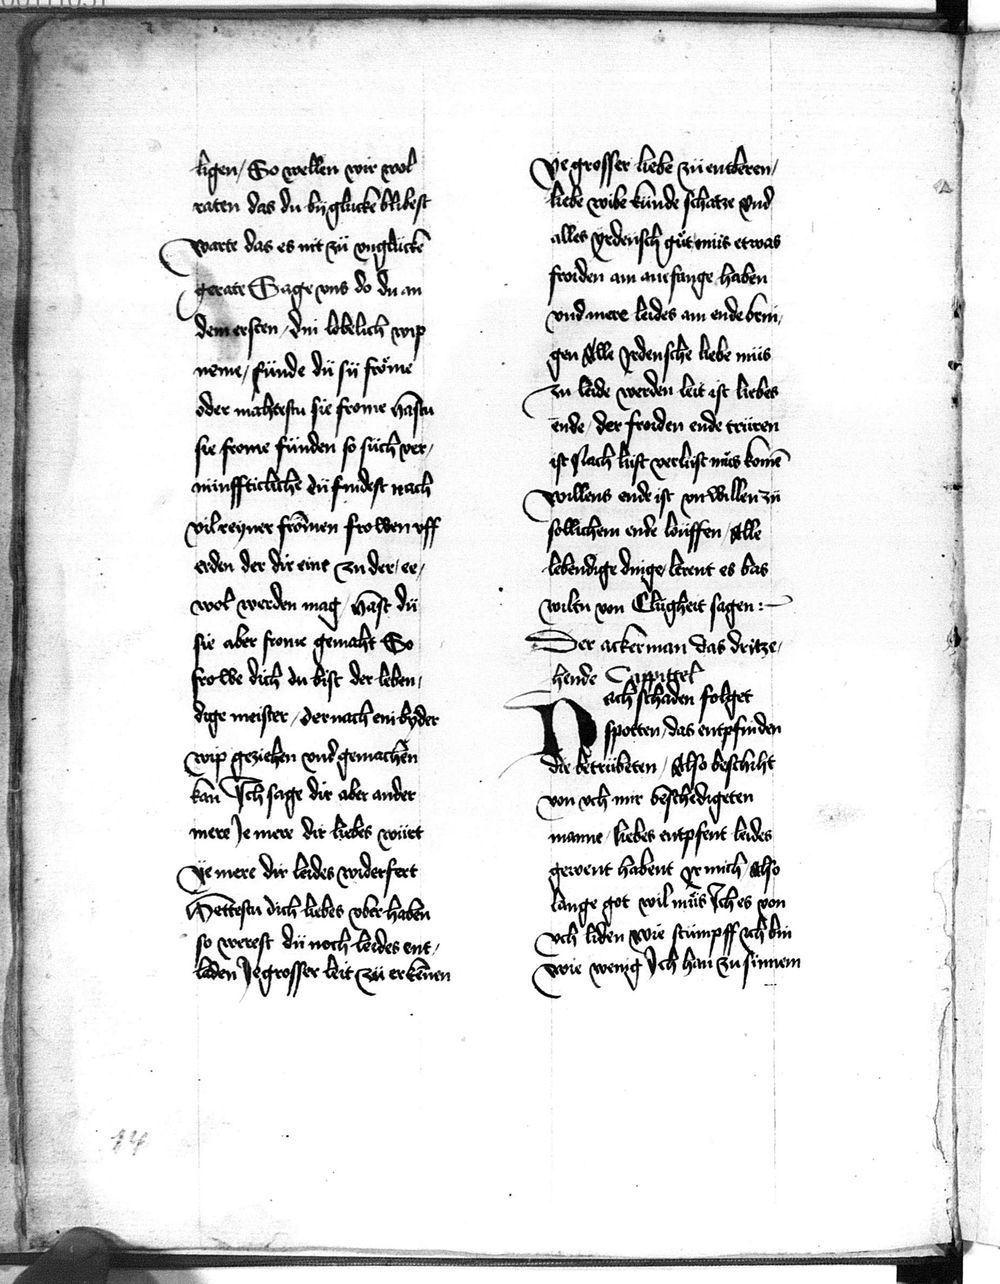 ligen / So wellen wir wol
raten das du by glucke blibest
warte das es nit zü vnglücke
gerate Sage vns do du an
dem ersten / din lobelich wip
neme / fünde dü sü frome
oder mahtestu sie frome hastu
sie frome fünden so süch ver /
nünffticliche dü findest nach
vil reyner fromen frowen vff
erden der dir eine zu der / ee /
wol werden mag / hast dü
sie aber frome gemaht So
frowe dich du bist der leben /
dige meister / der nach ein byder
wip geziehen vnd gemachen
kan Ich sage dir aber ander
mere Je mere dir liebes würt
Ye mere dir leides widerfert
Hettestu dich liebes vberhaben
so werest dü noch leides ent /
laden Je grosser leit zü erkenen
Ye grosser liebe zü entberen /
liebe wibe künde schatze vnd
alles yrdensch güt müs etwas
froiden am anefange haben
vnd mere leides am ende brin /
gen Alle yrdensche liebe müs
zu leide werden leit ist liebes
ende / der froiden ende trüren
ist Nach lust verlust müs komē
willens ende ist vnwillen zü
sollichem ende louffen / Alle
lebendige dinge / lerent es bas
wiltu von Clugheit sagen :-
Der ackerman das dritze /
hende Cappittel
Nach schaden folget
spotten / das entpfinden
die betrübeten / Also beschiht
von vch mir beschedigeten
manne / liebes entpfent leides
gewent habent yr mich / Also
lange got wil müs Ich es von
vch liden wie stumpff ich bin
wie wenig Ich han zu sinnem
14